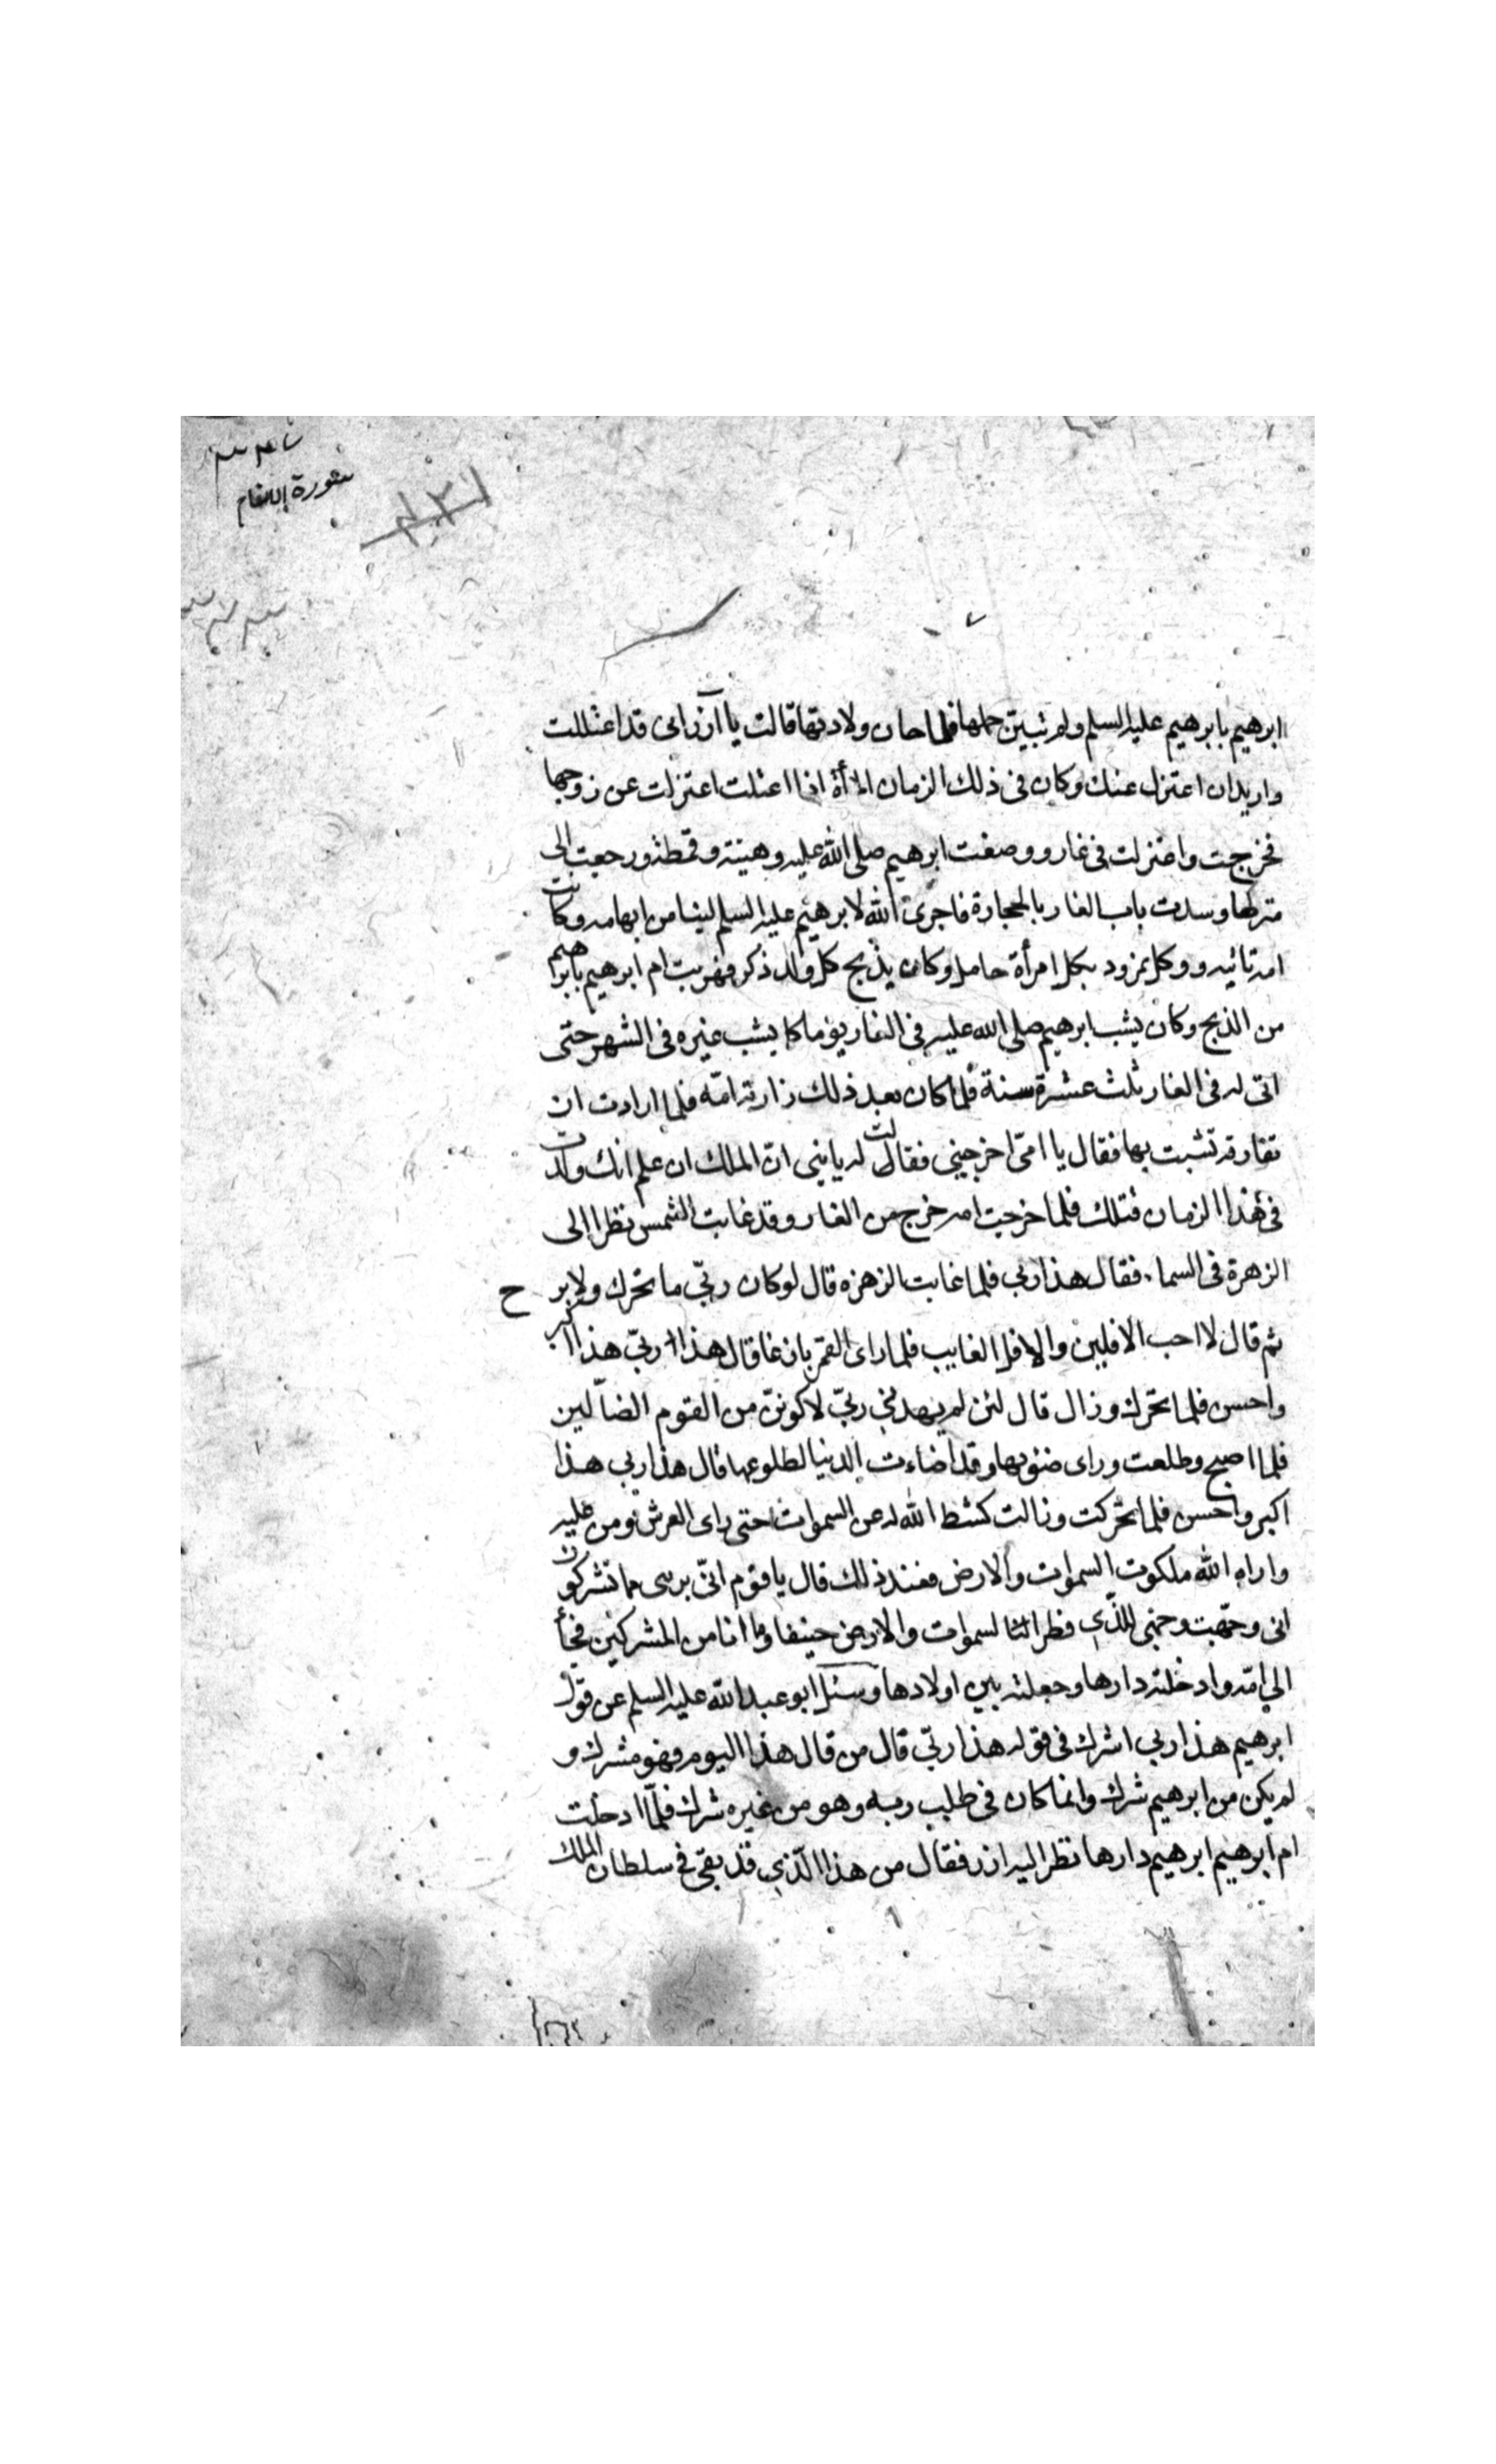 سورة الانعام
ابرهيم بابرهيم عليه السلم ولم تبين حملها فلما حان ولادتها قالت يا آزر انى قد اعتللت
واريد ان اعتزل عنك وكان فى ذلك الزمان المرأة اذا اعتلت اعتزلت عن زوجها
فخرجت واعتزلت فى غار ووضعت ابرهيم صلى الله عليه وهيئته وقمطته ورجعت الى
منزلها وسدت باب الغار بالحجارة فاجرى الله لابرهيم عليه السلم لبنا من ابهامه وكانت
امه تاتيه ووكل نمرود بكل امرأة حامل وكان يذبح كل ولد ذكر فهربت ام ابرهيم بابرهيم
من الذبح وكان يشب ابرهيم صلى الله عليه فى الغار يوما كما يشب غيره فى الشهر حتى
اتى له فى الغار ثلث عشرة سنة فلما كان بعد ذلك زارته امّه فلما ارادت ان
تفارقه تشبت بها فقال يا امّى اخرجينى فقالت له يا بنى انّ الملك ان علم انك ولدت
فى هذا الزمان قتلك فلما خرجت امه خرج من الغار وقد غابت الشمس نظر الى
الزهرة فى السماء فقال هذا ربى فلما غابت الزهره قال لو كان ربّى ما تحرك ولا برح
ثم قال لا احب الافلين والافل الغايب فلما راى القمر بازغا قال هذا ربّى هذا اكبر
واحسن فلما تحرك وزال قال لئن لم يهدنى ربّى لاكوننّ من القوم الضالّين
فلما اصبح وطلعت وراى ضوئها وقد اضاءت الدنيا لطلوعها قال هذا ربى هذا
اكبر واحسن فلما تحركت وزالت كشط الله له عن السموات حتى راى العرش ومن عليه
واراه الله ملكوت السموات والارض فعند ذلك قال يا قوم انّى برىء مما تشركون
انى وجّهت وجهى للذى فطر السموات والارض حنيفا وما انا من المشركين فجأ
الى امّه وادخلته دارها وجعلته بين اولادها وسئل ابو عبد الله عليه السلم عن قول
ابرهيم هذا ربى اشرك فى قوله هذا ربّى قال من قال هذا اليوم فهو مشرك و
لم يكن من ابرهيم شرك وانما كان فى طلب ربه وهو من غيره شرك فلمّا ادخلت
ام ابرهيم ابرهيم دارها نظر اليه ازر فقال من هذا الّذى قد بقى فى سلطان الملك